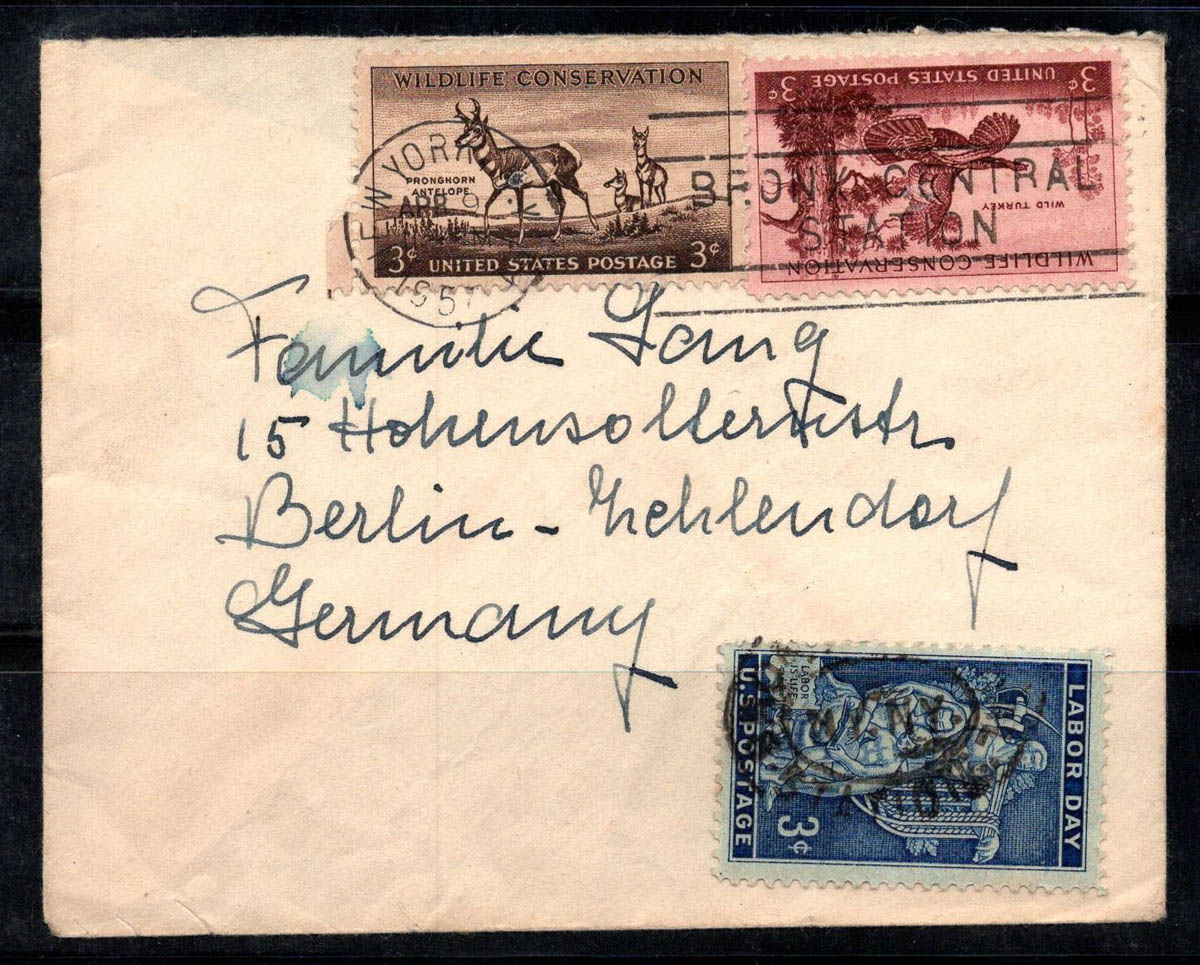 WILDLIFE CONSERVATION
PRONGHORN
ANTELOPE
3¢ UNITED STATES POSTAGE 3¢
3¢ UNITED STATES POSTAGE 3¢
WILD TURKEY
WILDLIFE CONSERVATION
NEW YORK
APR 9
1957
BRONX CENTRAL
STATION
Familie Lang
15 Hohensollernstr.
Berlin - Zehlendorf
Germany
LABOR DAY
LABOR
IS LIFE
3¢
U.S. POSTAGE